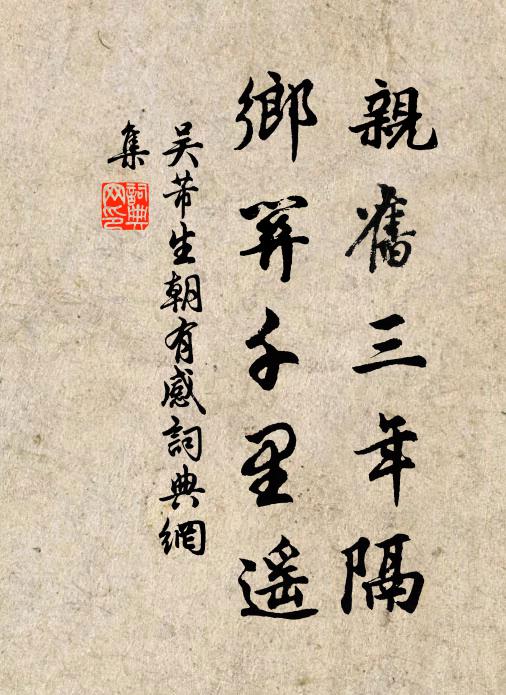 親舊三年隔
鄉關千里遙
吳芾生朝有感詞典網
集
詞典
网印